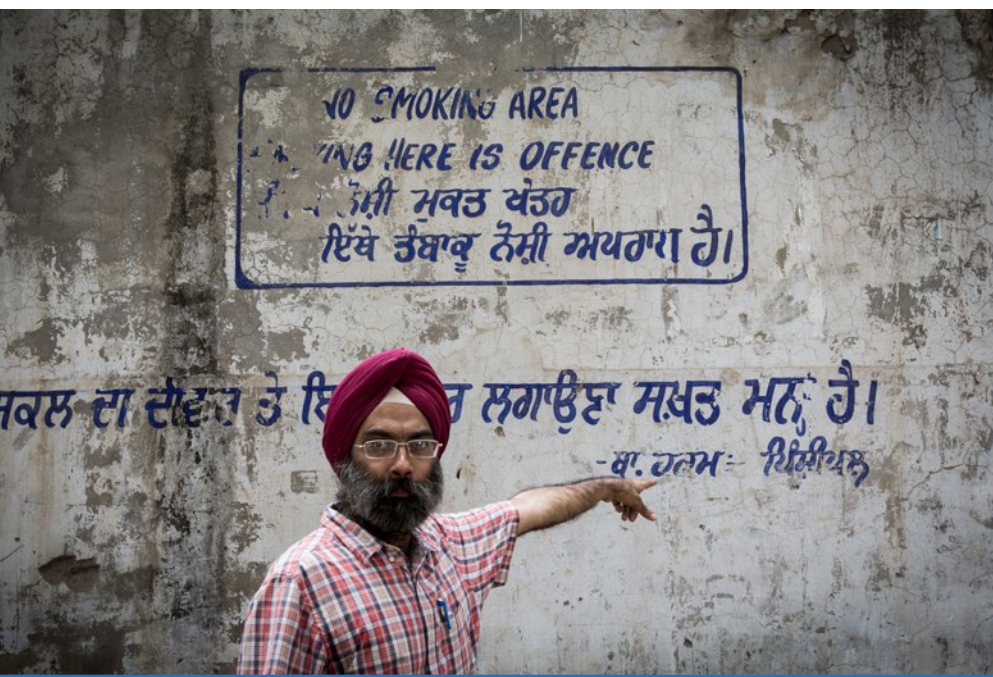 NO SMOKING AREA
HERE IS OFFENCE
ਨੋਸ਼ੀ ਮੁਕਤ ਖੇਤਰ
ਇੱਥੇ ਤੰਬਾਕੂ ਨੋਸ਼ੀ ਅਪਰਾਧ ਹੈ।
ਦਾ ਦੀਵਾਰ ਤੇ ਲਗਾਉਣਾ ਸਖ਼ਤ ਮਨ੍ਹਾ ਹੈ।
-ਬਾ. ਹੁਕਮ:- ਪ੍ਰਿੰਸੀਪਲ